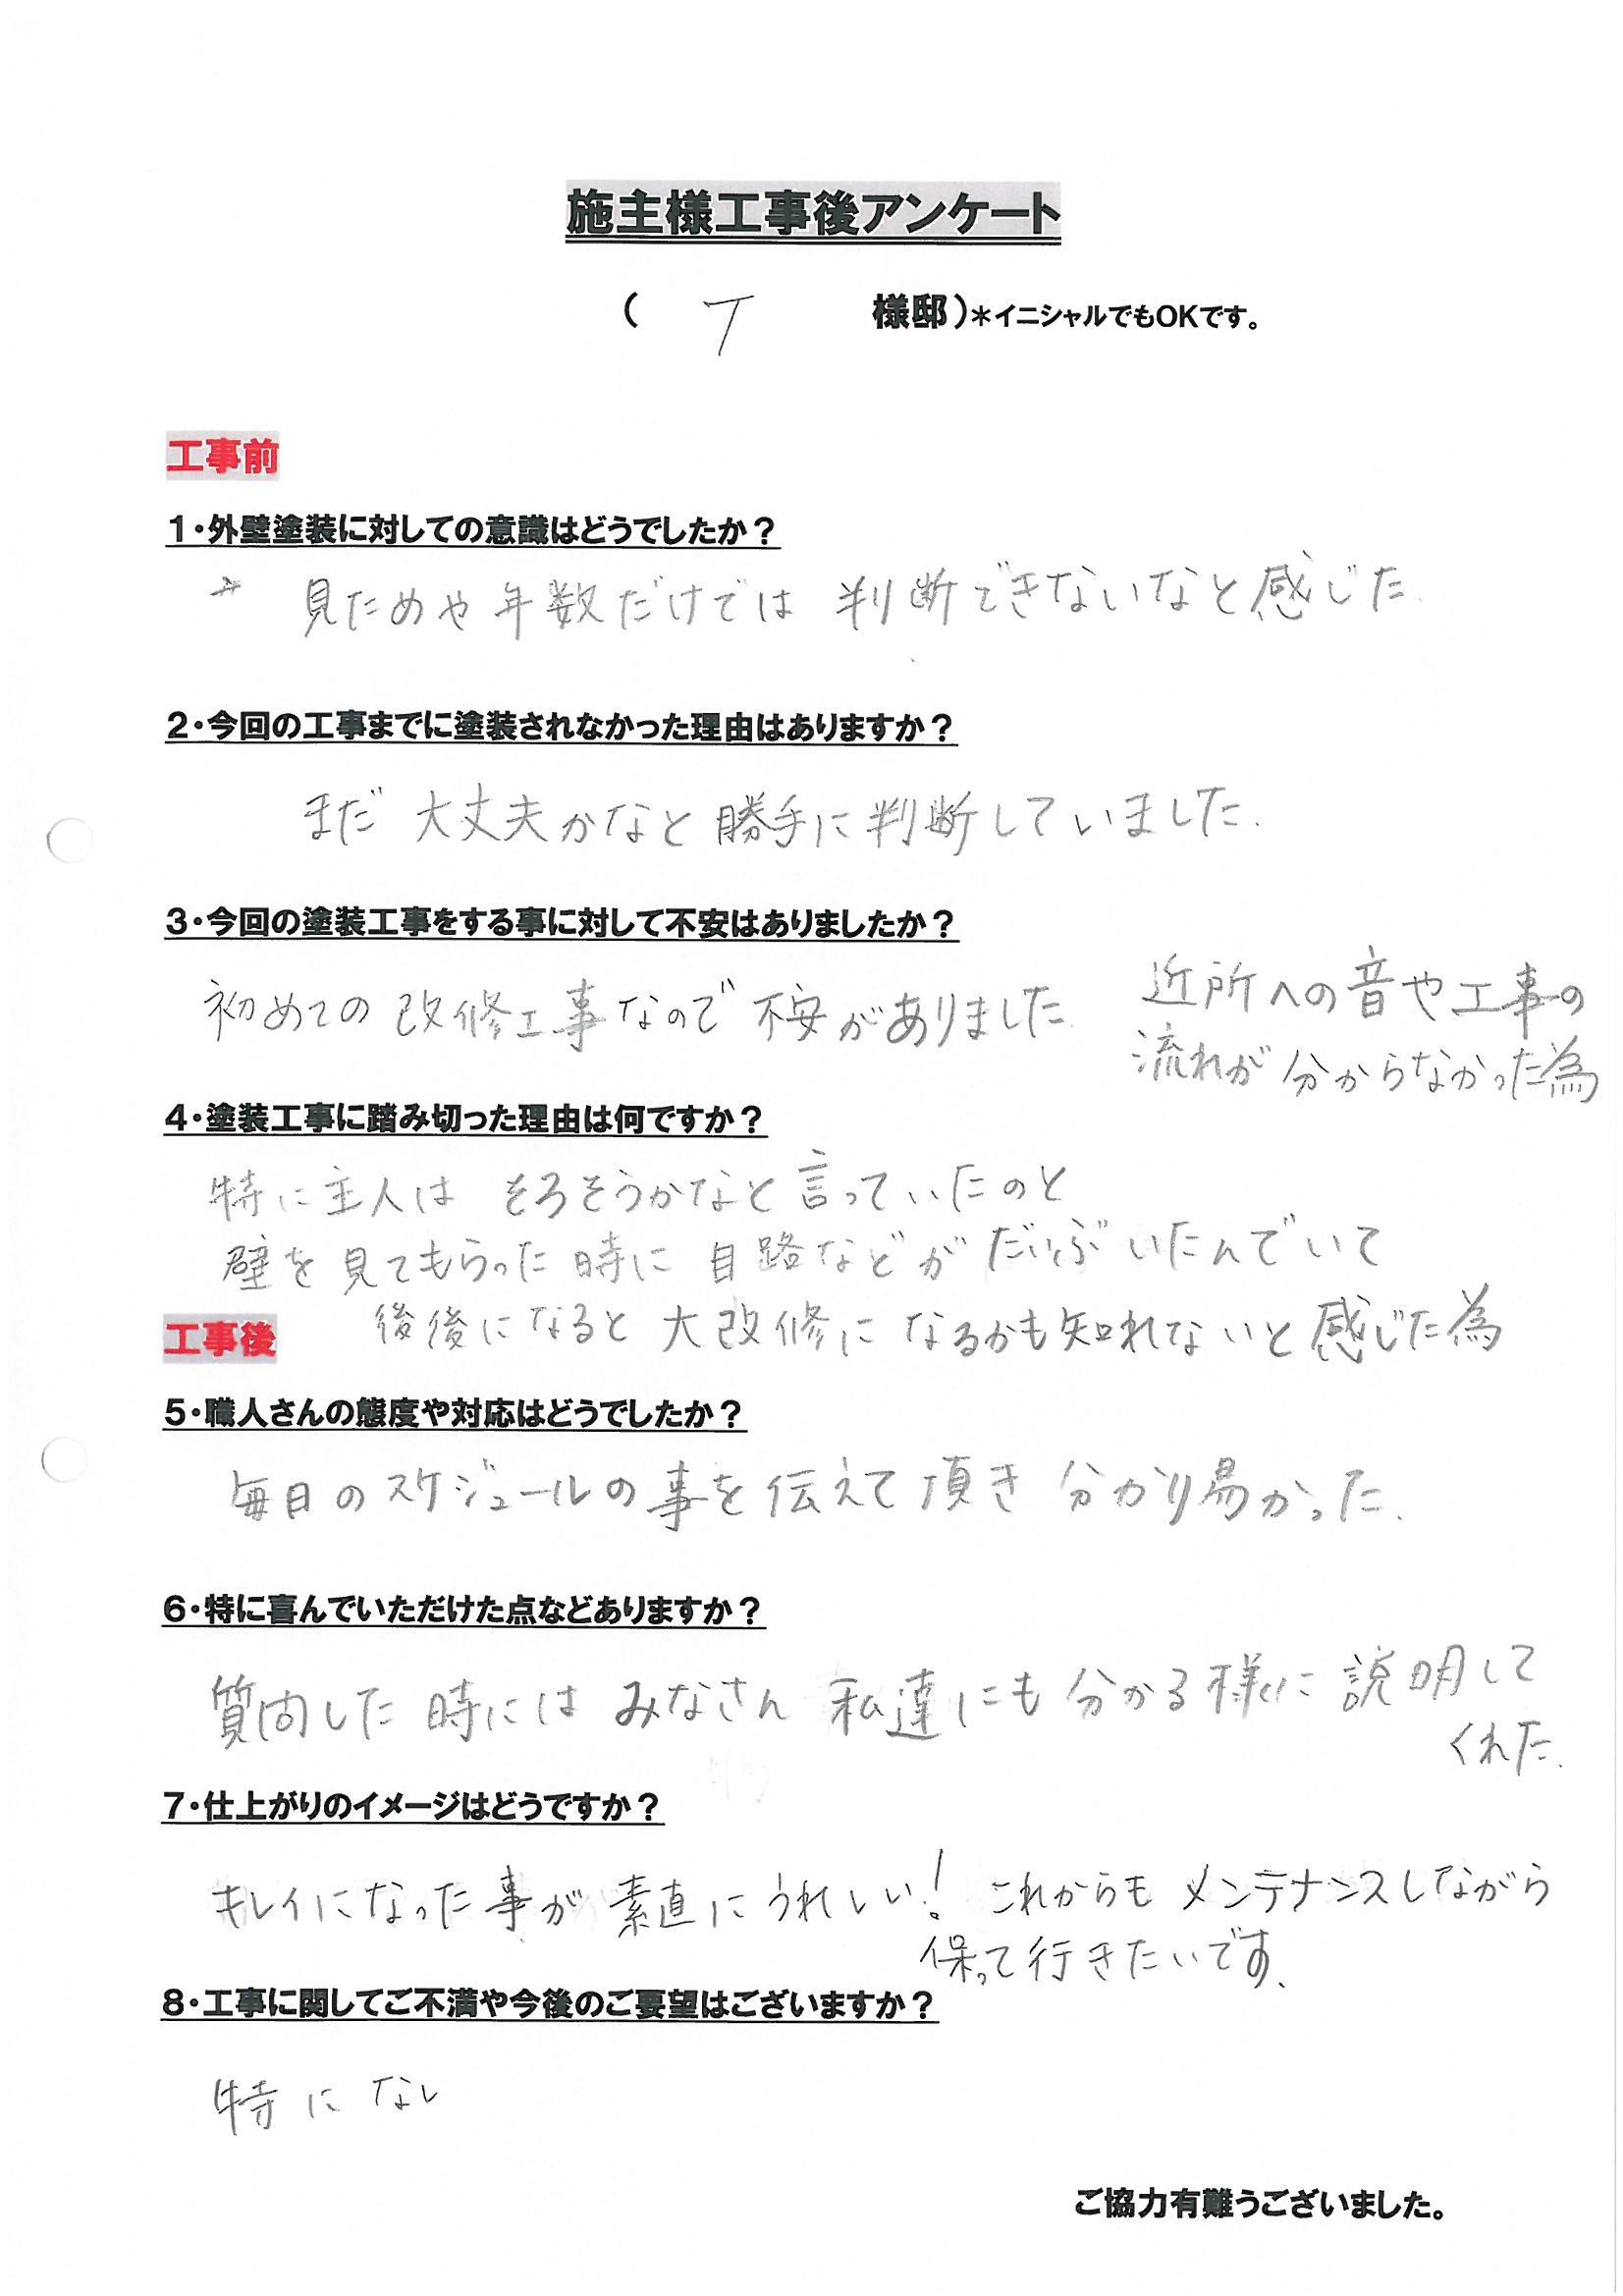 施主様工事後アンケート
( T 様邸)*イニシャルでもOKです。
工事前
1・外壁塗装に対しての意識はどうでしたか?
見ためや年数だけでは 判断できないなと感じた.
2・今回の工事までに塗装されなかった理由はありますか?
まだ 大丈夫かなと 勝手に判断していました.
3・今回の塗装工事をする事に対して不安はありましたか?
初めての改修工事なので不安がありました. 近所への音や工事の
流れが分からなかった為
4・塗装工事に踏み切った理由は何ですか?
特に主人は そろそろかなと言っていたのと
壁を見てもらった時に 目路などが だいぶいたんでいて
後後になると 大改修になるかも知れないと感じた為
工事後
5・職人さんの態度や対応はどうでしたか?
毎日のスケジュールの事を伝えて頂き 分かり易かった.
6・特に喜んでいただけた点などありますか?
質問した時には みなさん 私達にも分かる様に説明して
くれた.
7・仕上がりのイメージはどうですか?
キレイになった事が素直にうれしい! これからもメンテナンスしながら
保って行きたいです.
8・工事に関してご不満や今後のご要望はございますか?
特になし
ご協力有難うございました。